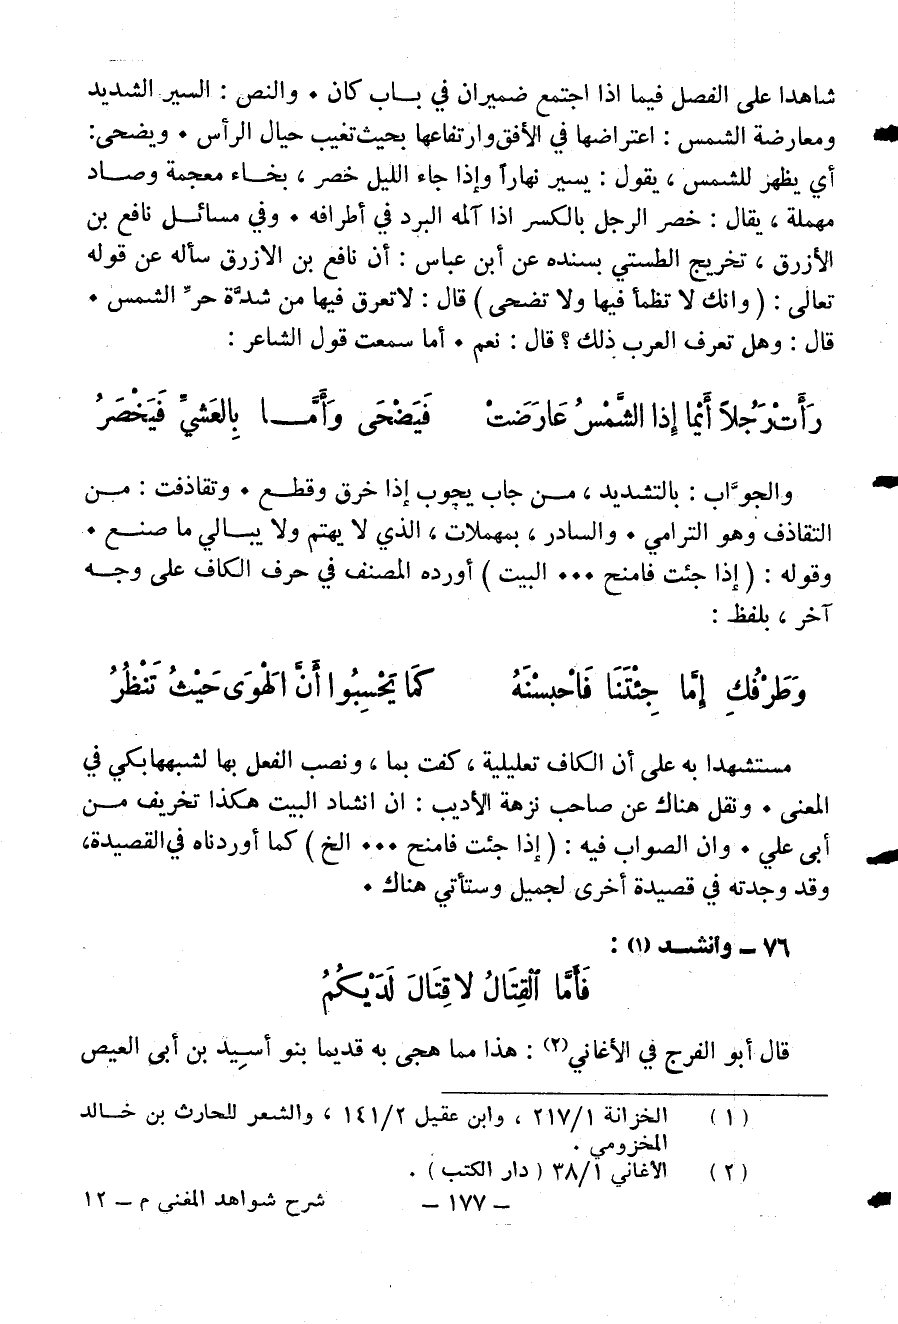 شاهدا على الفصل فيما اذا اجتمع ضميران في بـاب كان ٠ والنص : السير الشديد
ومعارضة الشمس : اعتراضها في الأفق وارتفاعها بحيث تغيب حيال الرأس ٠ ويضحى:
أي يظهر للشمس ، يقول : يسير نهاراً وإذا جاء الليل خصر ، بخـاء معجمة وصـاد
مهملة ، يقال : خصر الرجل بالكسر اذا آلمه البرد في أطرافه ٠ وفي مسائـل نافع بن
الأزرق ، تخريج الطستي بسنده عن أبن عباس : أن نافع بن الازرق سأله عن قوله
تعالى : ( وانك لا تظمأ فيها ولا تضحى ) قال : لاتعرق فيها من شدَّة حرِّ الشمس ٠
قال : وهل تعرف العرب ذلك ؟ قال : نعم ٠ أما سمعت قول الشاعر :
رَأَتْ رَجُلاً أَيْمَا إِذا الشَّمْسُ عَارَضَتْ    فَيَضْحَى وَأَمَّـا بِالعَشيِّ فَيَخْصَرُ
والجوَّاب : بالتشديد ، مـن جاب يجوب إذا خرق وقطـع ٠ وتقاذفت : مـن
التقاذف وهو الترامي ٠ والسادر ، بمهملات ، الذي لا يهتم ولا يبـالي ما صنـع ٠
وقوله : ( إذا جئت فامنح ٠٠٠ البيت ) أورده المصنف في حرف الكاف على وجـه
آخر ، بلفظ :
وَطَرْفُكِ إِمَّا جِئْتَنَا فَاحْبِسْنَهُ    كَمَا يَحْسِبُوا أَنَّ الهْوَى حَيْثُ تَنْظُرُ
مستشهدا به على أن الكاف تعليلية ، كفت بما ، ونصب الفعل بها لشبهها بكي في
المعنى ٠ ونقل هناك عن صاحب نزهة الأديب : ان انشاد البيت هكذا تخريف مـن
أبى علي ٠ وان الصواب فيه : ( إذا جئت فامنح ٠٠٠ الخ ) كما أوردناه في القصيدة،
وقد وجدته في قصيدة أخرى لجميل وستأتي هناك ٠
٧٦ ـ وأنشـد (١) :
فَأَمَّا ٱلقِتَالُ لا قِتَالَ لَدَيْكُمُ
قال أبو الفرج في الأغاني(٢) : هذا مما هجى به قديما بنو أسيد بن أبى العيص
(١) الخزانة ٢١٧/١ ، وابن عقيل ١٤١/٢ ، والشعر للحارث بن خـالد
المخزومي .
(٢) الأغاني ٣٨/١ ( دار الكتب ) .
ـ ١٧٧ ـ    شرح شواهد المغنى م ـ ١٢